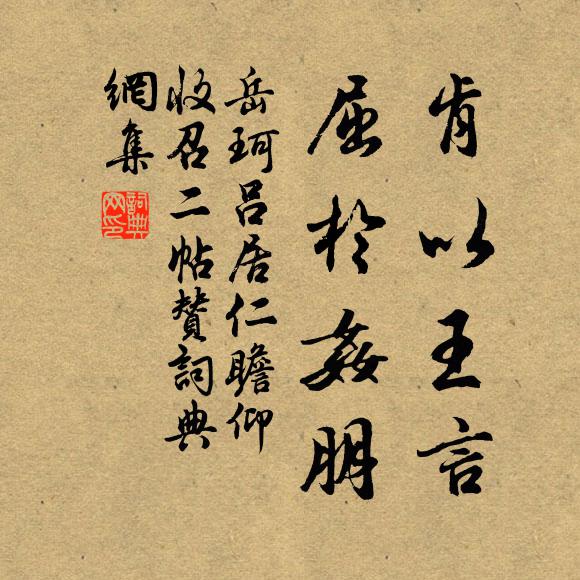 肯以王言
屈於姦朋
岳珂呂居仁瞻仰
收召二帖贊詞典
網集
詞典網印